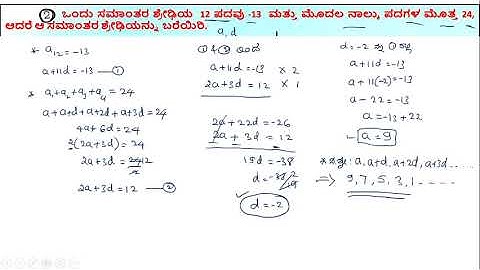 ② ಒಂದು ಸಮಾಂತರ ಶ್ರೇಢಿಯ 12 ಪದವು -13 ಮತ್ತು ಮೊದಲ ನಾಲ್ಕು ಪದಗಳ ಮೊತ್ತ 24,
ಆದರೆ ಆ ಸಮಾಂತರ ಶ್ರೇಢಿಯನ್ನು ಬರೆಯಿರಿ.
a, d
* a₁₂ = -13
a+11d = -13 —①
* a₁+a₂+a₃+a₄ = 24
a+a+d+a+2d+a+3d = 24
4a+6d = 24
2(2a+3d) = 24
2a+3d = 24/2 12
2a+3d = 12 —②
① & ② ರಿಂದ
a+11d = -13 × 2
2a+3d = 12 × 1
2a+22d = -26
2a+3d = 12
19d = -38
d = -38/19 2
✓ d = -2
a+11d = -13
a+11(-2) = -13
a-22 = -13
a = -13+22
a = 9
a, a+d, a+2d, a+3d ......
⇒ 9, 7, 5, 3, 1 - - - -